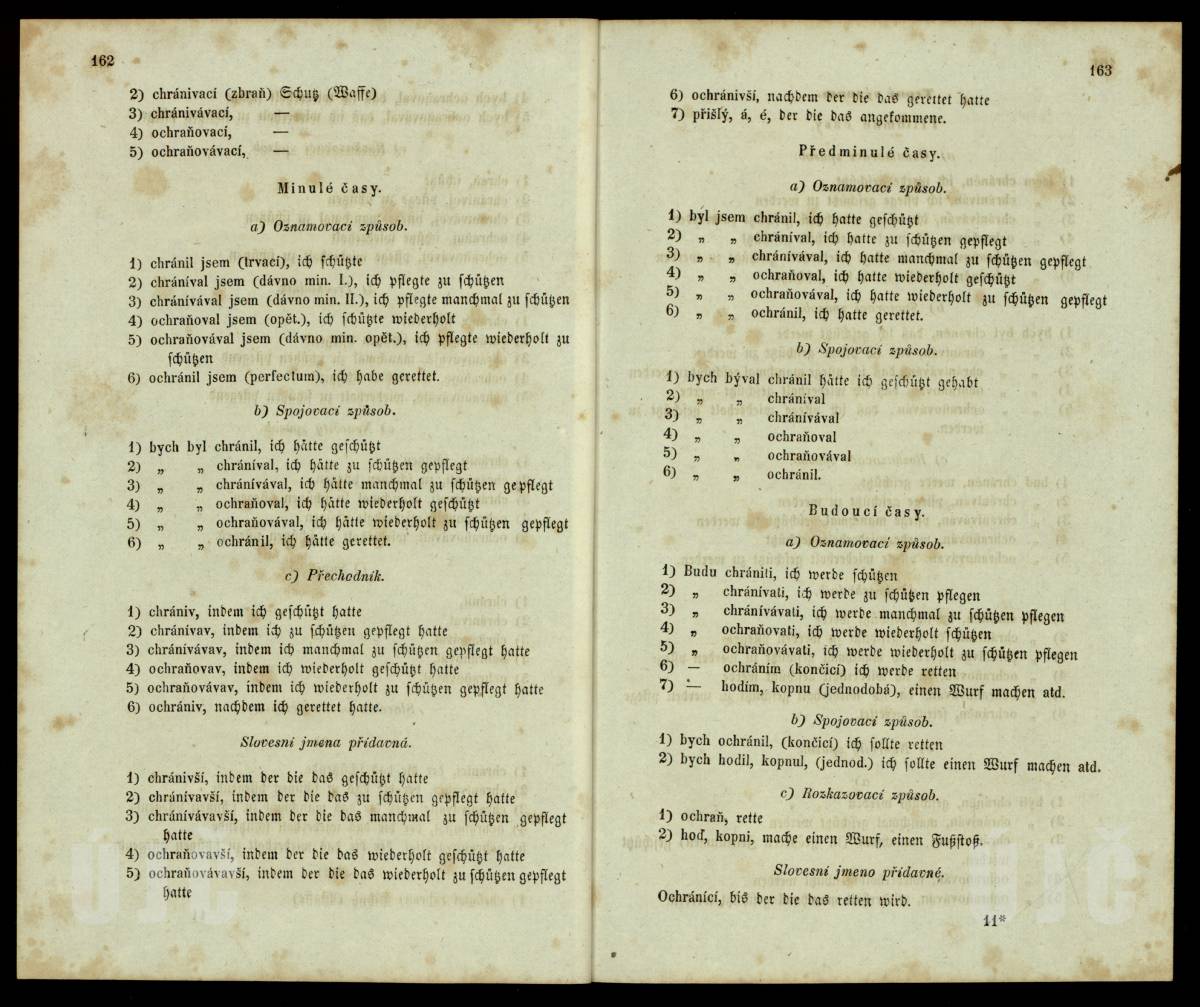 162
2) chránivací (zbraň) Schutz (Waffe)
3) chránivávací, —
4) ochraňovací, —
5) ochraňovávací, —
Minulé časy.
a) Oznamovací způsob.
1) chránil jsem (trvací), ich schützte
2) chráníval jsem (dávno min. I.), ich pflegte zu schützen
3) chránívával jsem (dávno min. II.), ich pflegte manchmal zu schützen
4) ochraňoval jsem (opět.), ich schützte wiederholt
5) ochraňovával jsem (dávno min. opět.), ich pflegte wiederholt zu
schützen
6) ochránil jsem (perfectum), ich habe gerettet.
b) Spojovací způsob.
1) bych byl chránil, ich hätte geschützt
2) „ „ chráníval, ich hätte zu schützen gepflegt
3) „ „ chránívával, ich hätte manchmal zu schützen gepflegt
4) „ „ ochraňoval, ich hätte wiederholt geschützt
5) „ „ ochraňovával, ich hätte wiederholt zu schützen gepflegt
6) „ „ ochránil, ich hätte gerettet.
c) Přechodník.
1) chrániv, indem ich geschützt hatte
2) chránívav, indem ich zu schützen gepflegt hatte
3) chránívávav, indem ich manchmal zu schützen gepflegt hatte
4) ochraňovav, indem ich wiederholt geschützt hatte
5) ochraňovávav, indem ich wiederholt zu schützen gepflegt hatte
6) ochrániv, nachdem ich gerettet hatte.
Slovesní jmena přídavná.
1) chránivší, indem der die das geschützt hatte
2) chránívavší, indem der die das zu schützen gepflegt hatte
3) chránívávavší, indem der die das manchmal zu schützen gepflegt
hatte
4) ochraňovavší, indem der die das wiederholt geschützt hatte
5) ochraňovávavší, indem der die das wiederholt zu schützen gepflegt
hatte
163
6) ochránivší, nachdem der die das gerettet hatte
7) přišlý, á, é, der die das angekommene.
Předminulé časy.
a) Oznamovací způsob.
1) byl jsem chránil, ich hatte geschützt
2) „ „ chráníval, ich hatte zu schützen gepflegt
3) „ „ chránívával, ich hatte manchmal zu schützen gepflegt
4) „ „ ochraňoval, ich hatte wiederholt geschützt
5) „ „ ochraňovával, ich hatte wiederholt zu schützen gepflegt
6) „ „ ochránil, ich hatte gerettet.
b) Spojovací způsob.
1) bych býval chránil hätte ich geschützt gehabt
2) „ „ chráníval
3) „ „ chránívával
4) „ „ ochraňoval
5) „ „ ochraňovával
6) „ „ ochránil.
Budoucí časy.
a) Oznamovací způsob.
1) Budu chrániti, ich werde schützen
2) „ chránívati, ich werde zu schützen pflegen
3) „ chránívávati, ich werde manchmal zu schützen pflegen
4) „ ochraňovati, ich werde wiederholt schützen
5) „ ochraňovávati, ich werde wiederholt zu schützen pflegen
6) — ochráním (končicí) ich werde retten
7) — hodím, kopnu (jednodobá), einen Wurf machen atd.
b) Spojovací způsob.
1) bych ochránil, (končicí) ich sollte retten
2) bych hodil, kopnul, (jednod.) ich sollte einen Wurf machen atd.
c) Rozkazovací způsob.
1) ochraň, rette
2) hoď, kopni, mache einen Wurf, einen Fußstoß.
Slovesní jmeno přídavné.
Ochránící, bis der die das retten wird.
11*
ÚJČ
ÚJČ